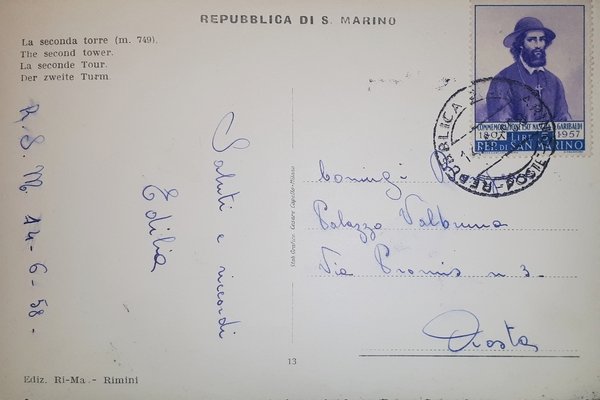 REPUBBLICA DI S. MARINO
La seconda torre (m. 749).
The second tower.
La seconde Tour.
Der zweite Turm.
R. S. M. 14-6-58-
Saluti e ricordi
Edilia
Stab. Grafico Cesare Capello-Milano
13
Ediz. Ri-Ma. - Rimini
COMMEMORAZIONE 150° NASCITA GARIBALDI
1807 LIRE 1957
REP. DI SAN MARINO
REPUBBLICA
POSTE
Palazzo Valbruna
Via Promis n 3.
Aosta